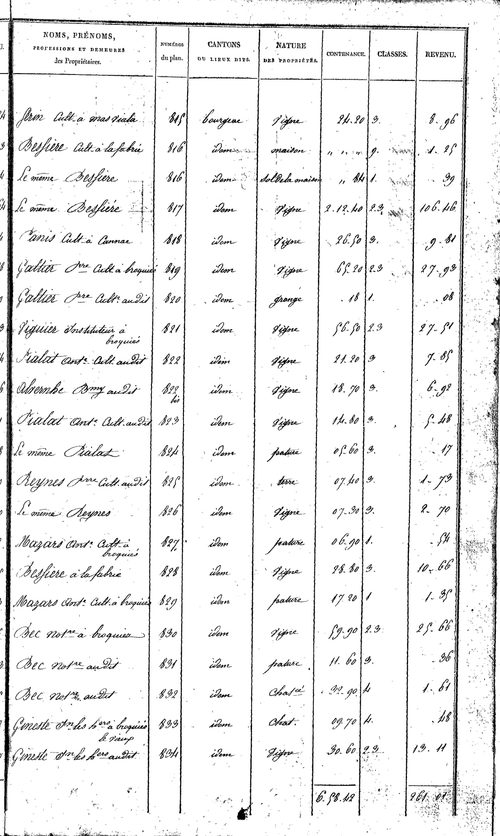 NOMS, PRÉNOMS, PROFESSIONS ET DEMEURES des Propriétaires. NUMÉROS du plan. CANTONS OU LIEUX DITS. NATURE DES PROPRIÉTÉS. CONTENANCE. CLASSES. REVENU.
Cult. à mas viala 815 vigne 24. 20 3. 8. 96
Bessiere Cult. à la fabrie 816 idem maison „ „ „ 9. 1. 25
Le même Bessiere 816 idem sol de la maison „ 84 1. 39
Le même Bessiére 817 idem Vigne 2. 12. 40 2.3 106. 46
Cult. à Cannac 818 idem Vigne 26. 50 3. 9. 81
Galtier pre Cult. à broquiés 819 idem Vigne 65. 20 2.3 27. 93
Galtier pre Cult. audit 820 idem grange . 18 1. . 08
Viguier Instituteur à broquiés 821 idem Vigne 56. 50 2.3 27. 51
Rialat Ant. Cult. audit 822 idem Vigne 21. 20 3 7. 85
Alrembe audit 822 bis idem Vigne 18. 70 3. 6. 92
Rialat Ant. Cult. audit 823 idem Vigne 14. 80 3. 5. 48
Le même Rialat 824 idem pature 05. 60 3. . 17
Reynes pre Cult. audit 825 idem terre 07. 40 3. 1. 73
Le même Reynes 826 idem Vigne 07. 30 3. 2. 70
Mazars Ant. Cult. à broquiés 827 idem pature 06. 90 1. . 54
Bessiere à la fabrie 828 idem Vigne 28. 80 3. 10. 66
Mazars Ant. Cult. à broquiés 829 idem pature 17 20 1 1. 35
Bec Notre à broquiés 830 idem Vigne 59. 90 2.3 25. 66
Bec Notre audit 831 idem pature 11. 60 3. . 36
Bec Notre audit 832 idem 32. 90 4 1. 61
Geneste les hers à broquiés le vieux 833 idem Chat. 09. 70 4. . 48
Geneste les hers audit 834 idem Vigne 30. 60 2.3 13. 11
6. 58. 42 261. 01